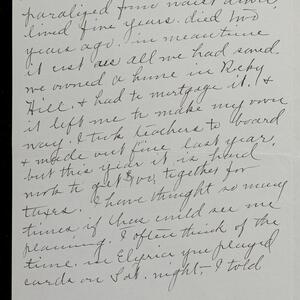 paralized from waist down
lived five years. died two
years ago. in meantime
it cost all we had saved.
we owned a home in Rocky
Hill. & had to mortgage it. &
it left me to make my own
way. I took teachers to board
& made out fine last year,
but this year it is hard
work to get together for
taxes. I have thought so many
times if Chas could see me
planning. I often think of the
time in Elyria you played
cards on Sat. night, I told